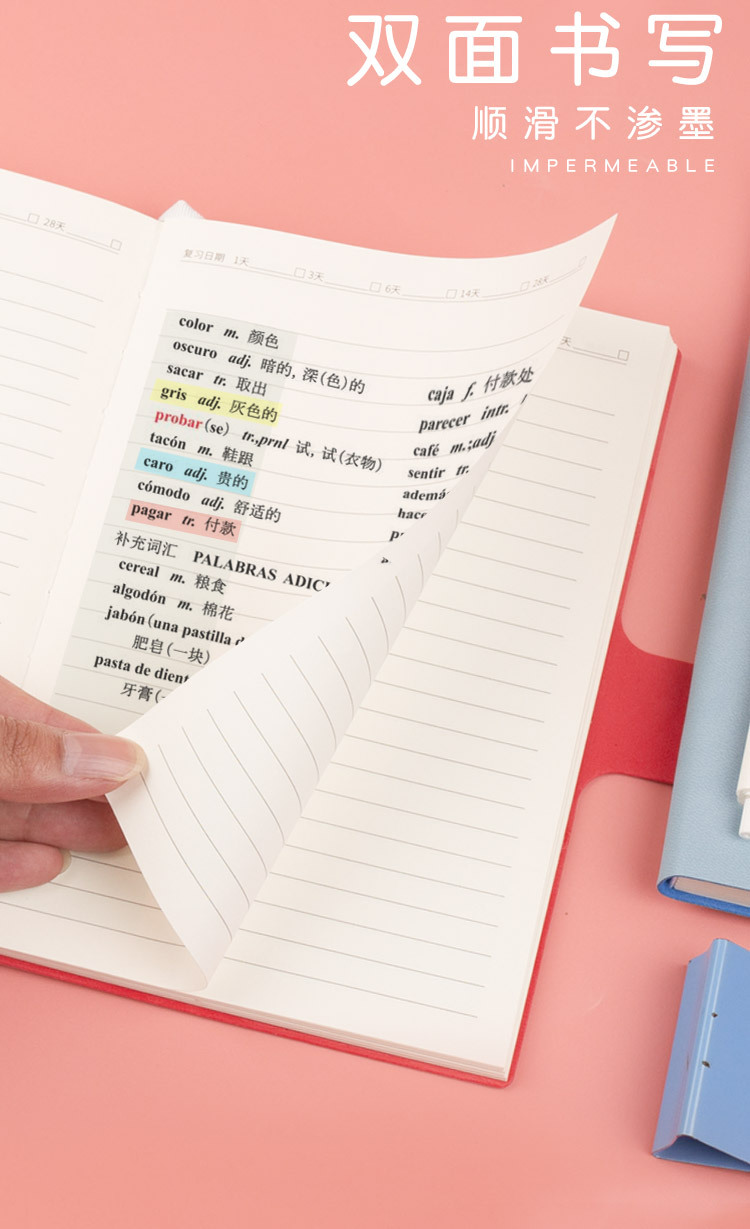 双面书写
顺滑不渗墨
IMPERMEABLE
28天
复习日期 1天 3天 6天 14天 28天
天
color m. 颜色
oscuro adj. 暗的, 深(色)的
sacar tr. 取出
gris adj. 灰色的
probar(se) tr.,prnl 试, 试(衣物)
tacón m. 鞋跟
caro adj. 贵的
cómodo adj. 舒适的
pagar tr. 付款
补充词汇 PALABRAS
cereal m. 粮食
algodón m. 棉花
jabón(una pastilla
肥皂(一块)
pasta de
牙膏(
caja f. 付款处
parecer intr.
café m.;adj
sentir tr.